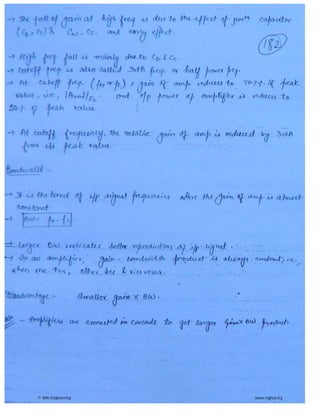 → The fall of gain at high freq is due to the effect of junⁿ capacitor
(C_D, C_T) & C_W, C_C. and early effect.
182
→ High freq. fall is mainly due to C_D & C_C.
→ Cutoff freq is also called 3db freq or half power freq.
→ At cutoff freq. gain of amp. reduces to 70.7% of peak
value, i.e., and o/p power of amplifier is reduces to
50% of peak value
→ At cutoff frequency, the relative gain of amp is reduced by 3db
from its peak value.
Bandwidth -
→ It is the band of i/p signal frequencies where the gain of amp is almost
constant
→ BW = f_H - f_L
→ Larger BW indicates better reproduction of i/p signal.
→ In an amplifier, gain-bandwidth product is always constant, i.e.,
when one ↑es, other ↓es & vice versa.
Disadvantage - Smaller gain x BW.
- Amplifiers are connected in cascade to get larger gain x BW product
© Wiki Engineering
www.raghul.org